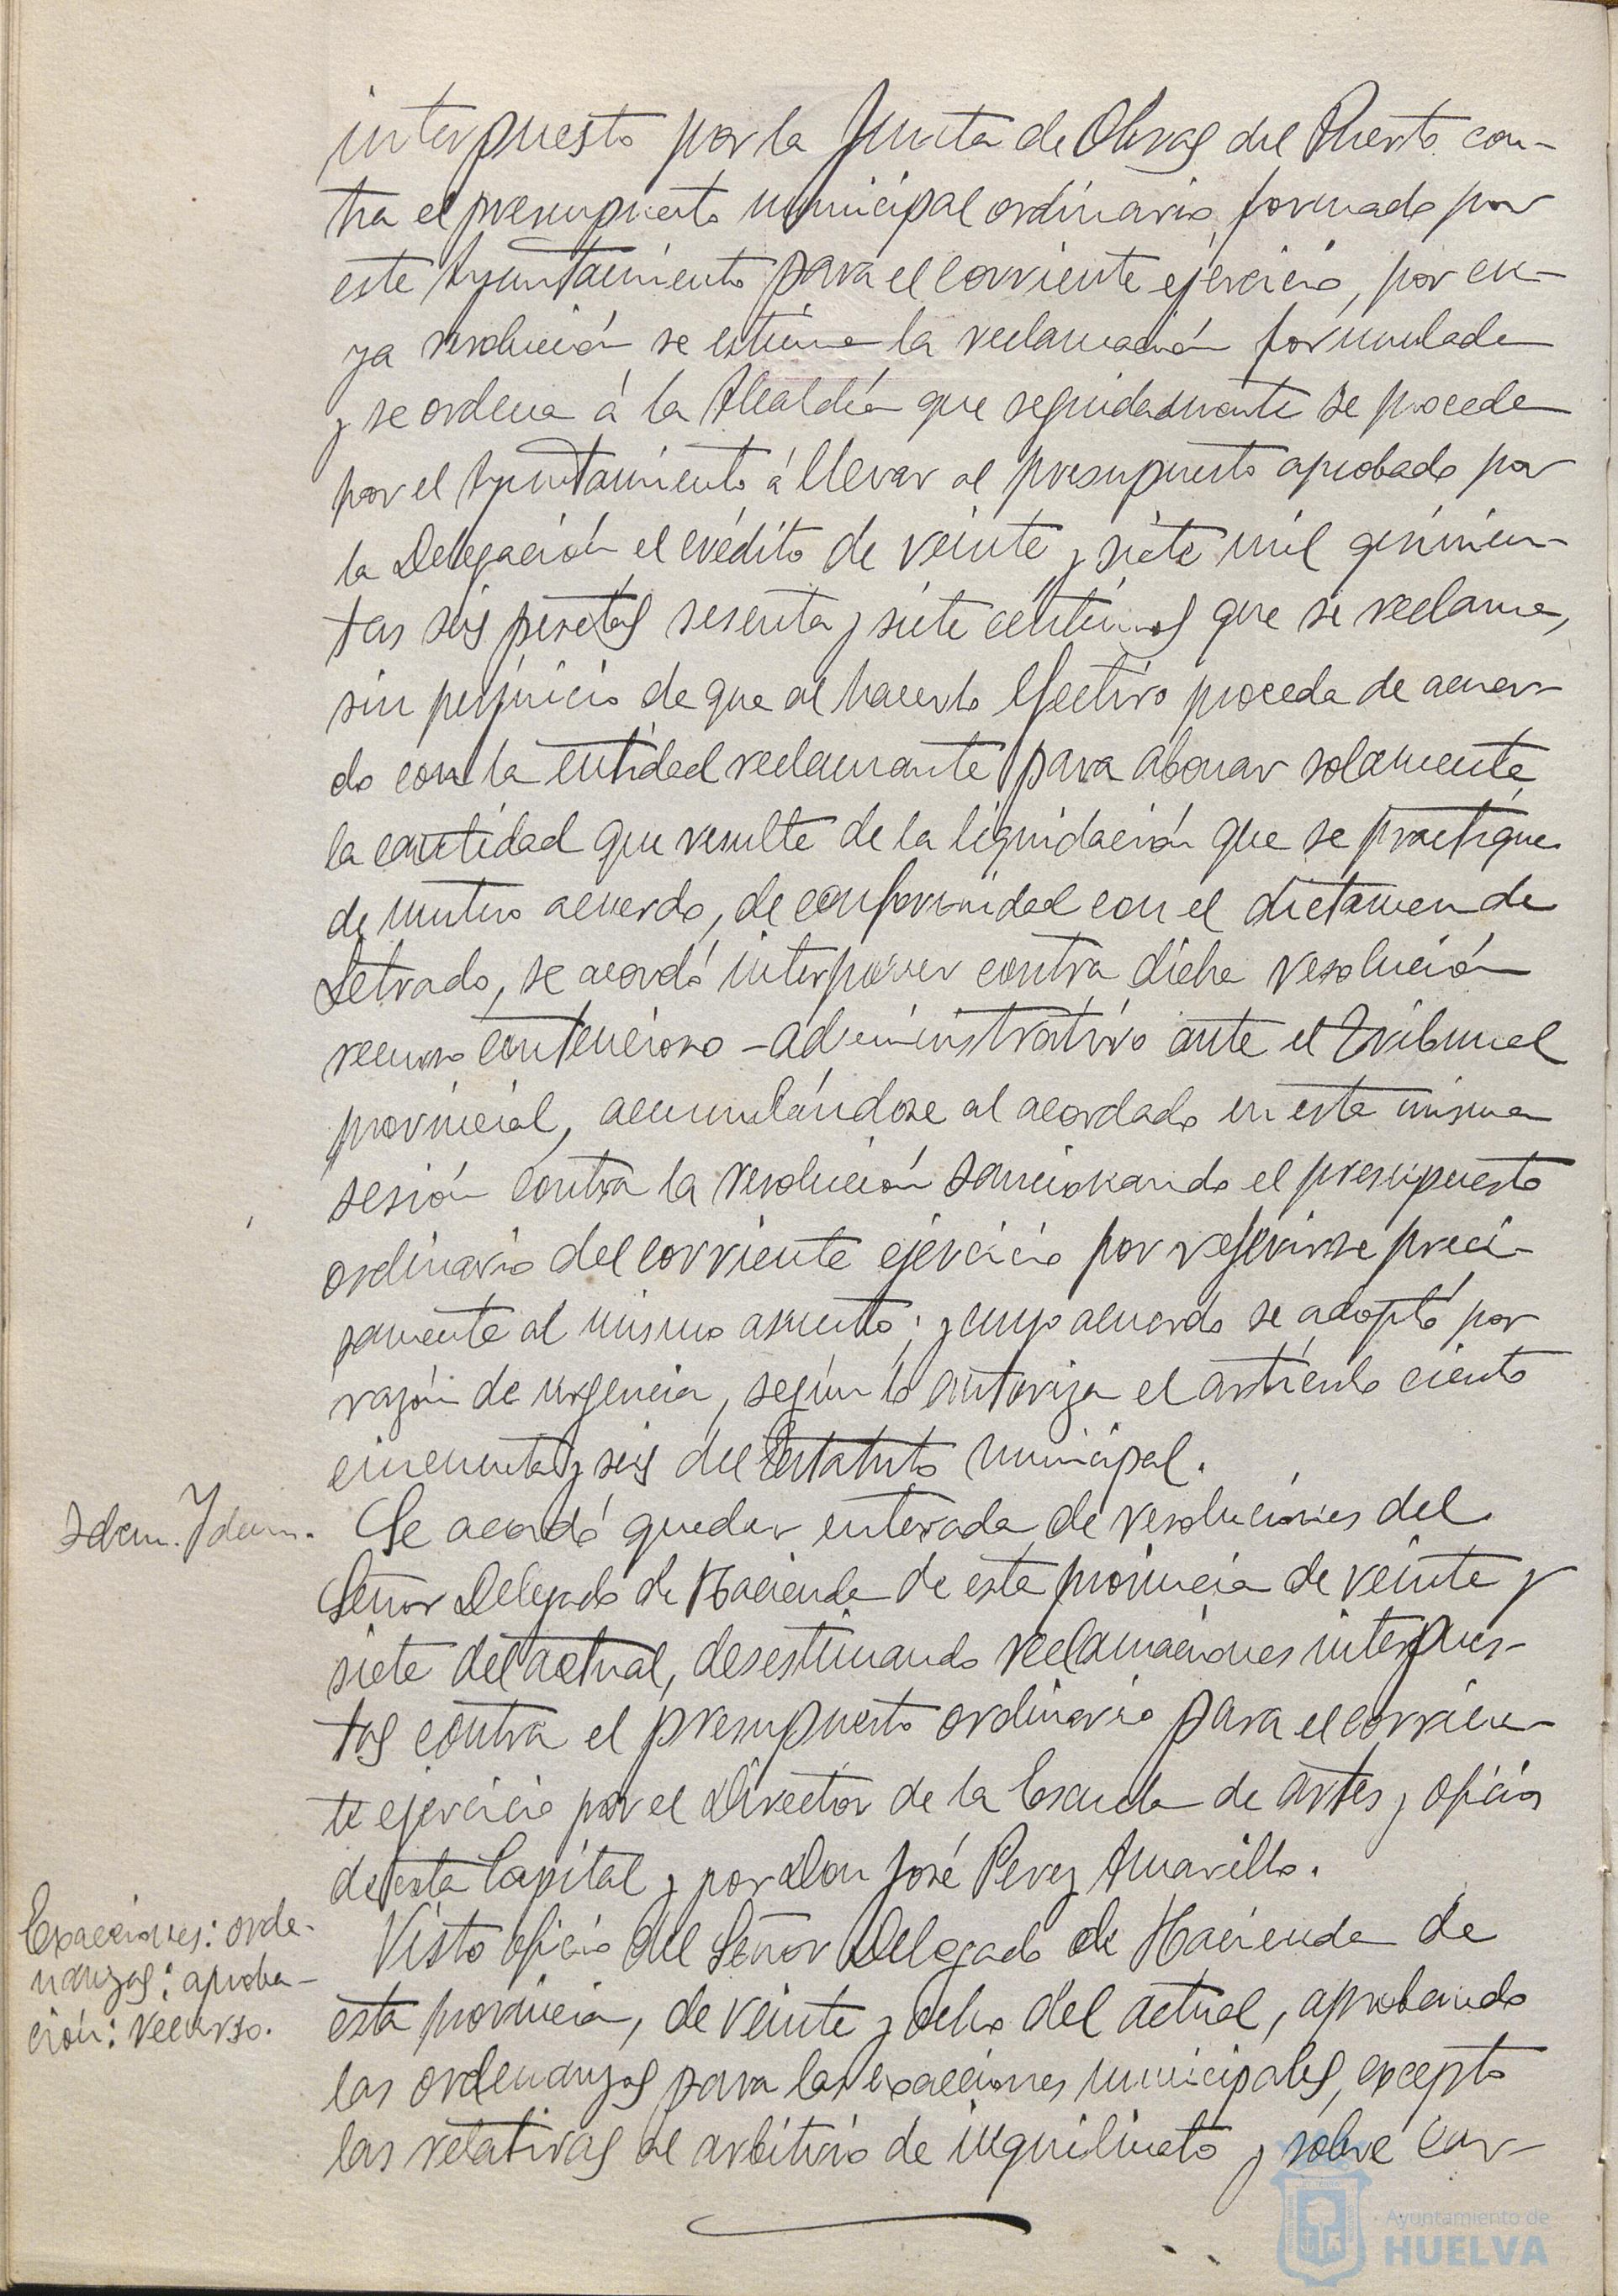 interpuesto por la Junta de Obras del Puerto con-
tra el presupuesto municipal ordinario, formado por
este Ayuntamiento para el corriente ejercicio, por cu-
ya resolución se estima la reclamación formulada
y se ordena á la Alcaldía que seguidamente se proceda
por el Ayuntamiento á llevar al presupuesto aprobado por
la Delegación el crédito de veinte y siete mil quinien-
tas seis pesetas sesenta y siete céntimos que se reclama,
sin perjuicio de que al hacerlo efectivo proceda de acuer-
do con la entidad reclamante para abonar solamente
la cantidad que resulte de la liquidación que se practique
de mutuo acuerdo, de conformidad con el dictamen de
Letrado, se acordó interponer contra dicha resolución
recurso contencioso-administrativo ante el Tribunal
provincial, acumulándose al acordado en esta misma
sesión contra la resolución sancionando el presupuesto
ordinario del corriente ejercicio por referirse preci-
samente al mismo asunto; y cuyo acuerdo se adoptó por
razón de urgencia, según lo autoriza el artículo ciento
cincuenta y seis del Estatuto municipal.
Idem. Idem.
Se acordó quedar enterada de resoluciones del
Señor Delegado de Hacienda de esta provincia de veinte y
siete del actual, desestimando reclamaciones interpues-
tas contra el presupuesto ordinario para el corrien-
te ejercicio por el Director de la Escuela de Artes y oficios
de esta Capital y por Don José Perez Amarillo.
Exacciones: orde-
nanzas: aproba-
ción: recurso.
Visto oficio del Señor Delegado de Hacienda de
esta provincia, de veinte y ocho del actual, aprobando
las ordenanzas para las exacciones municipales, excepto
las relativas al arbitrio de inquilinato y sobre car-
Ayuntamiento de
HUELVA